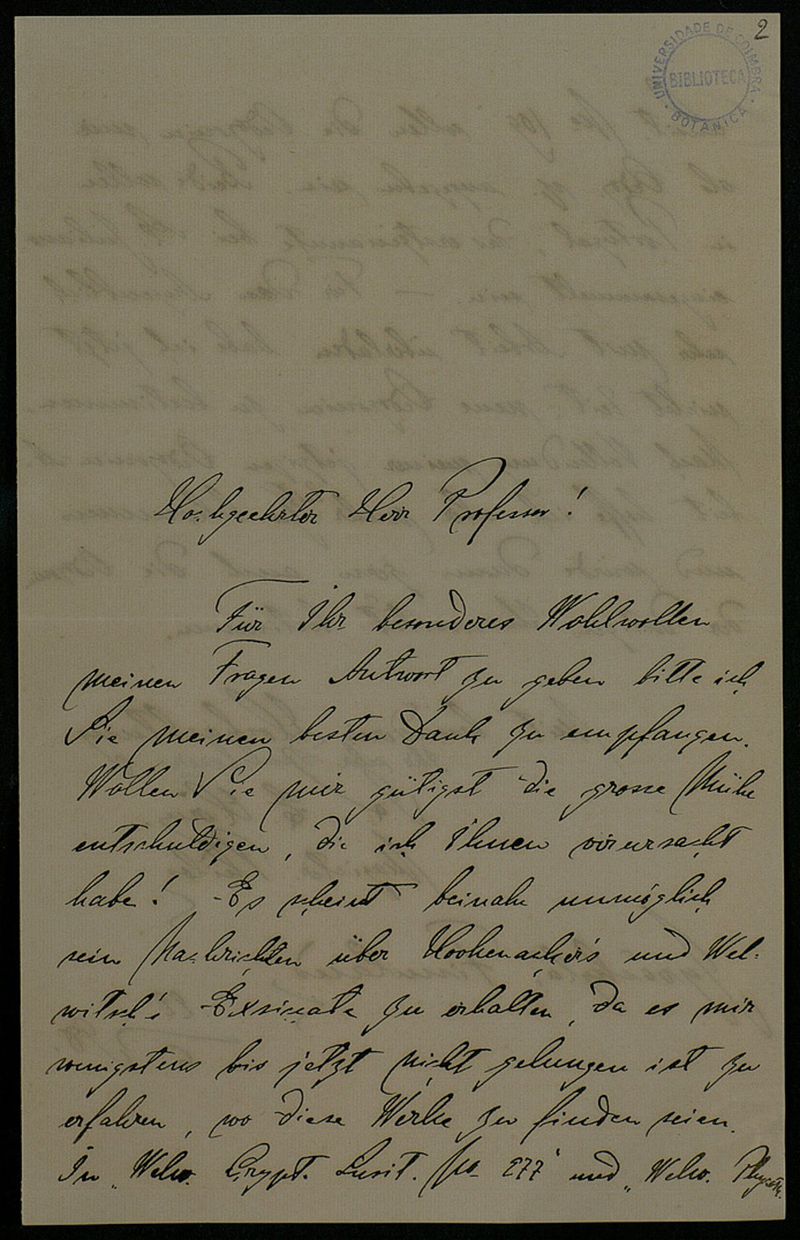 2
UNIVERSIDADE DE COIMBRA
BIBLIOTECA
BOTANICA
Hochgeehrter Herr Professor!
Für Ihr besonderes Wohlwollen
meinen Fragen Antwort zu geben bitte ich
Sie meinen besten Dank zu empfangen.
Wollen Sie mir gütigst die grosse Mühe
entschuldigen, die ich Ihnen verursacht
habe! Es scheint beinahe unmöglich
sein Nachrichten über Hohenacker's und Wel-
witsch's Exsicata zu erhalten, da es mir
wenigstens bis jetzt nicht gelungen ist zu
erfahren, wo diese Werke zu finden seien.
In „Welw. Crypt. Lusit. No 277" und „Welw. Phycoth.